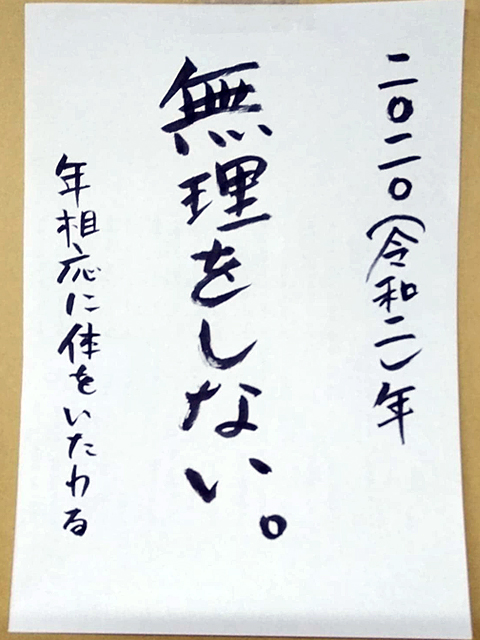 二〇二〇(令和二)年
無理をしない。
年相応に体をいたわる